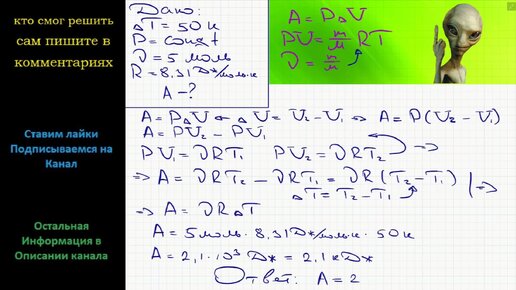 кто смог решить
сам пишите в
комментариях
Ставим лайки
Подписываемся на
Канал
Остальная
Информация в
Описании канала
Дано:
ΔT = 50 к
P = const
ν = 5 моль
R = 8,31 Дж/моль·к
A - ?
A = PΔV
PV = m/M RT
ν = m/M
A = PΔV ⇐ ΔV = V₂ - V₁ ⇒ A = P(V₂ - V₁)
A = PV₂ - PV₁
PV₁ = νRT₁ PV₂ = νRT₂ ⇒
⇒ A = νRT₂ - νRT₁ = νR(T₂ - T₁) | ⇒
ΔT = T₂ - T₁
⇒ A = νRΔT
A = 5 моль · 8,31 Дж/моль·к · 50к
A = 2,1 · 10³ Дж = 2,1 кДж
Ответ: A = 2